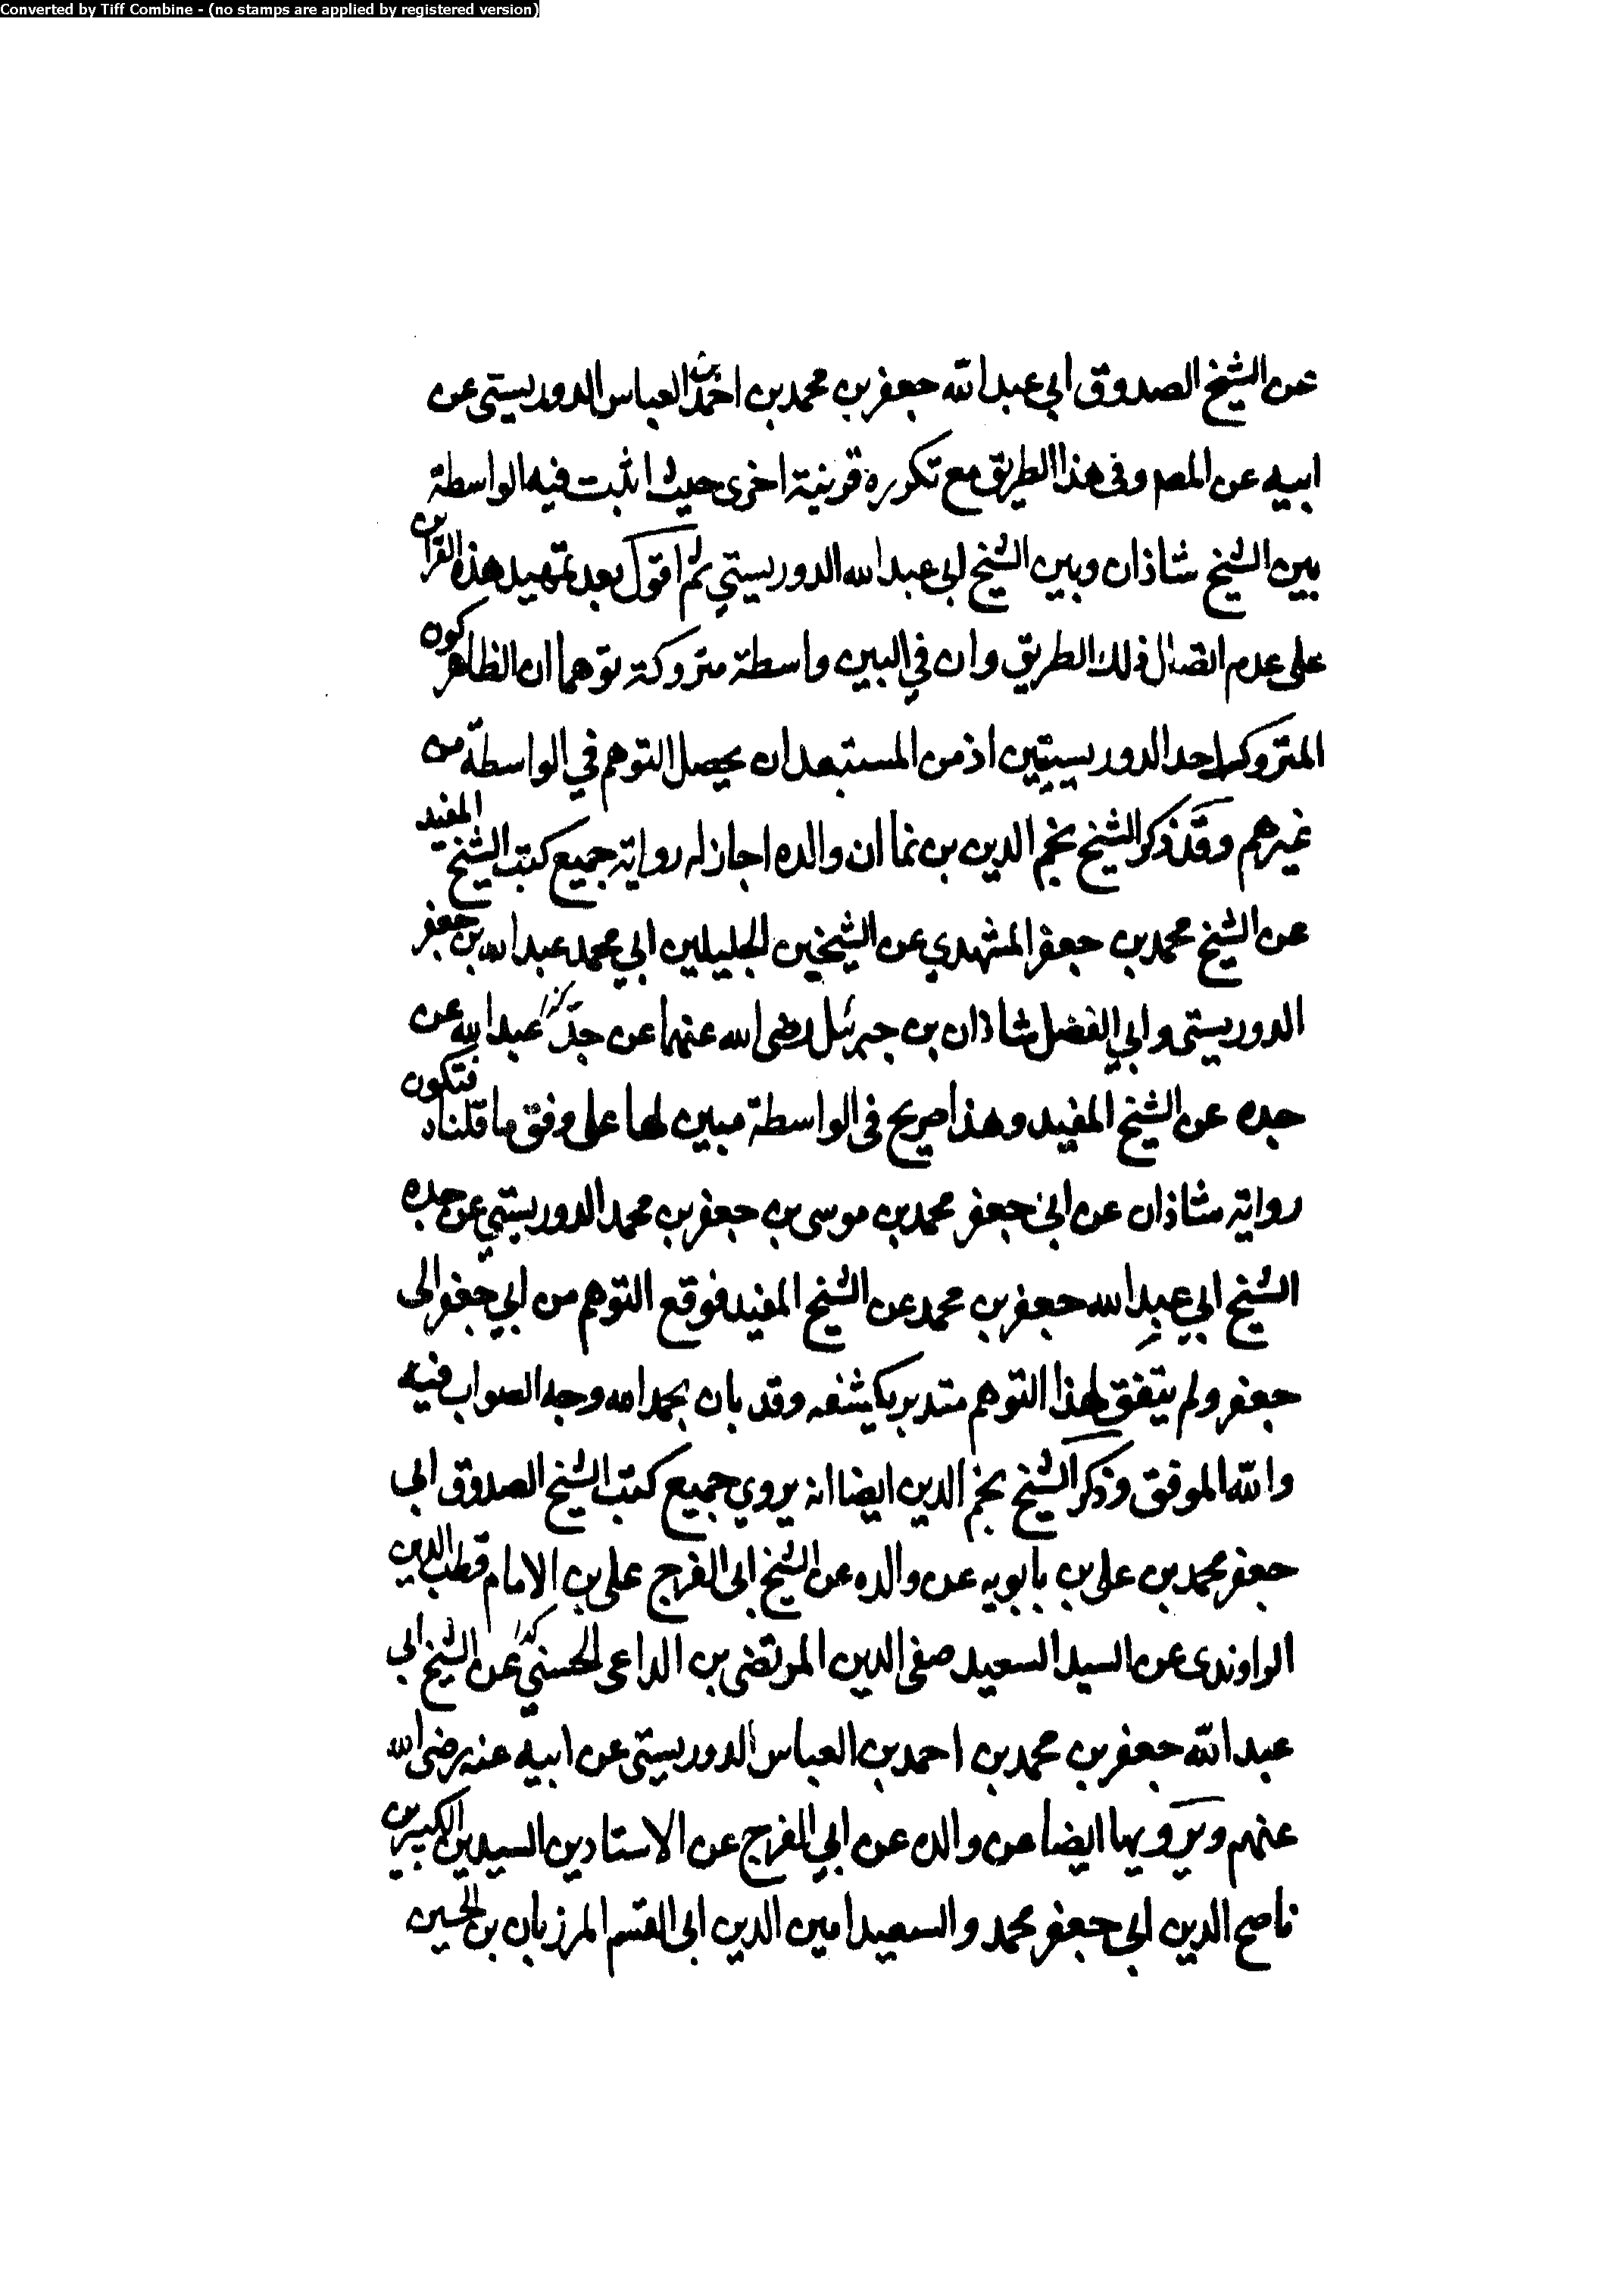 Converted by Tiff Combine - (no stamps are applied by registered version)
عن الشيخ الصدوق ابي عبد الله جعفر بن محمد بن احمد بن العباس الدوريستي عن
ابيه عن المصم وفي هذا الطريق مع تكوره قرينة اخرى حيث اثبت فيه الواسطة
بين الشيخ شاذان وبين الشيخ ابي عبد الله الدوريستي ثم اقول بعد تمهيد هذه القرائن
على عدم اتصال ذلك الطريق وان في البين واسطة متروكة توهما ان الظاهر كون
المتروك احد الدوريستيين اذ من المستبعد ان يحصل التوهم في الواسطة من
غيرهم وقد ذكر الشيخ نجم الدين بن نما ان والده اجاز له رواية جميع كتب الشيخ المفيد
عن الشيخ محمد بن جعفر المشهدي عن الشيخين الجليلين ابي محمد عبد الله بن جعفر
الدوريستي وابي الفضل شاذان بن جبرئيل رضى الله عنهما عن جد كذا عبد الله عن
جده عن الشيخ المفيد وهذا صريح في الواسطة مبين لها على وفق ما قلناه فتكون
رواية شاذان عن ابي جعفر محمد بن موسى بن جعفر بن محمد الدوريستي عن جده
الشيخ ابي عبد الله جعفر بن محمد عن الشيخ المفيد فوقع التوهم من ابي جعفر الى
جعفر ولم يتفق لهذا التوهم متدبر يكشفه وقد بان بحمد الله وجه الصواب فيه
والله الموفق وذكر الشيخ نجم الدين ايضا انه يروي جميع كتب الشيخ الصدوق ابي
جعفر محمد بن علي بن بابويه عن والده عن الشيخ ابي الفرج علي بن الامام قطب الدين
الراوندي عن السيد السعيد صفي الدين المرتضى بن الداعي الحسني كذا عن الشيخ ابي
عبد الله جعفر بن محمد بن احمد بن العباس الدوريستي عن ابيه عنه رضى الله
عنهم ويرويها ايضا عن والده عن ابي الفرج عن الاستادين السيدين الكبيرين
ناصح الدين ابي جعفر محمد والسعيد امين الدين ابي القسم المرزبان بن الحسين